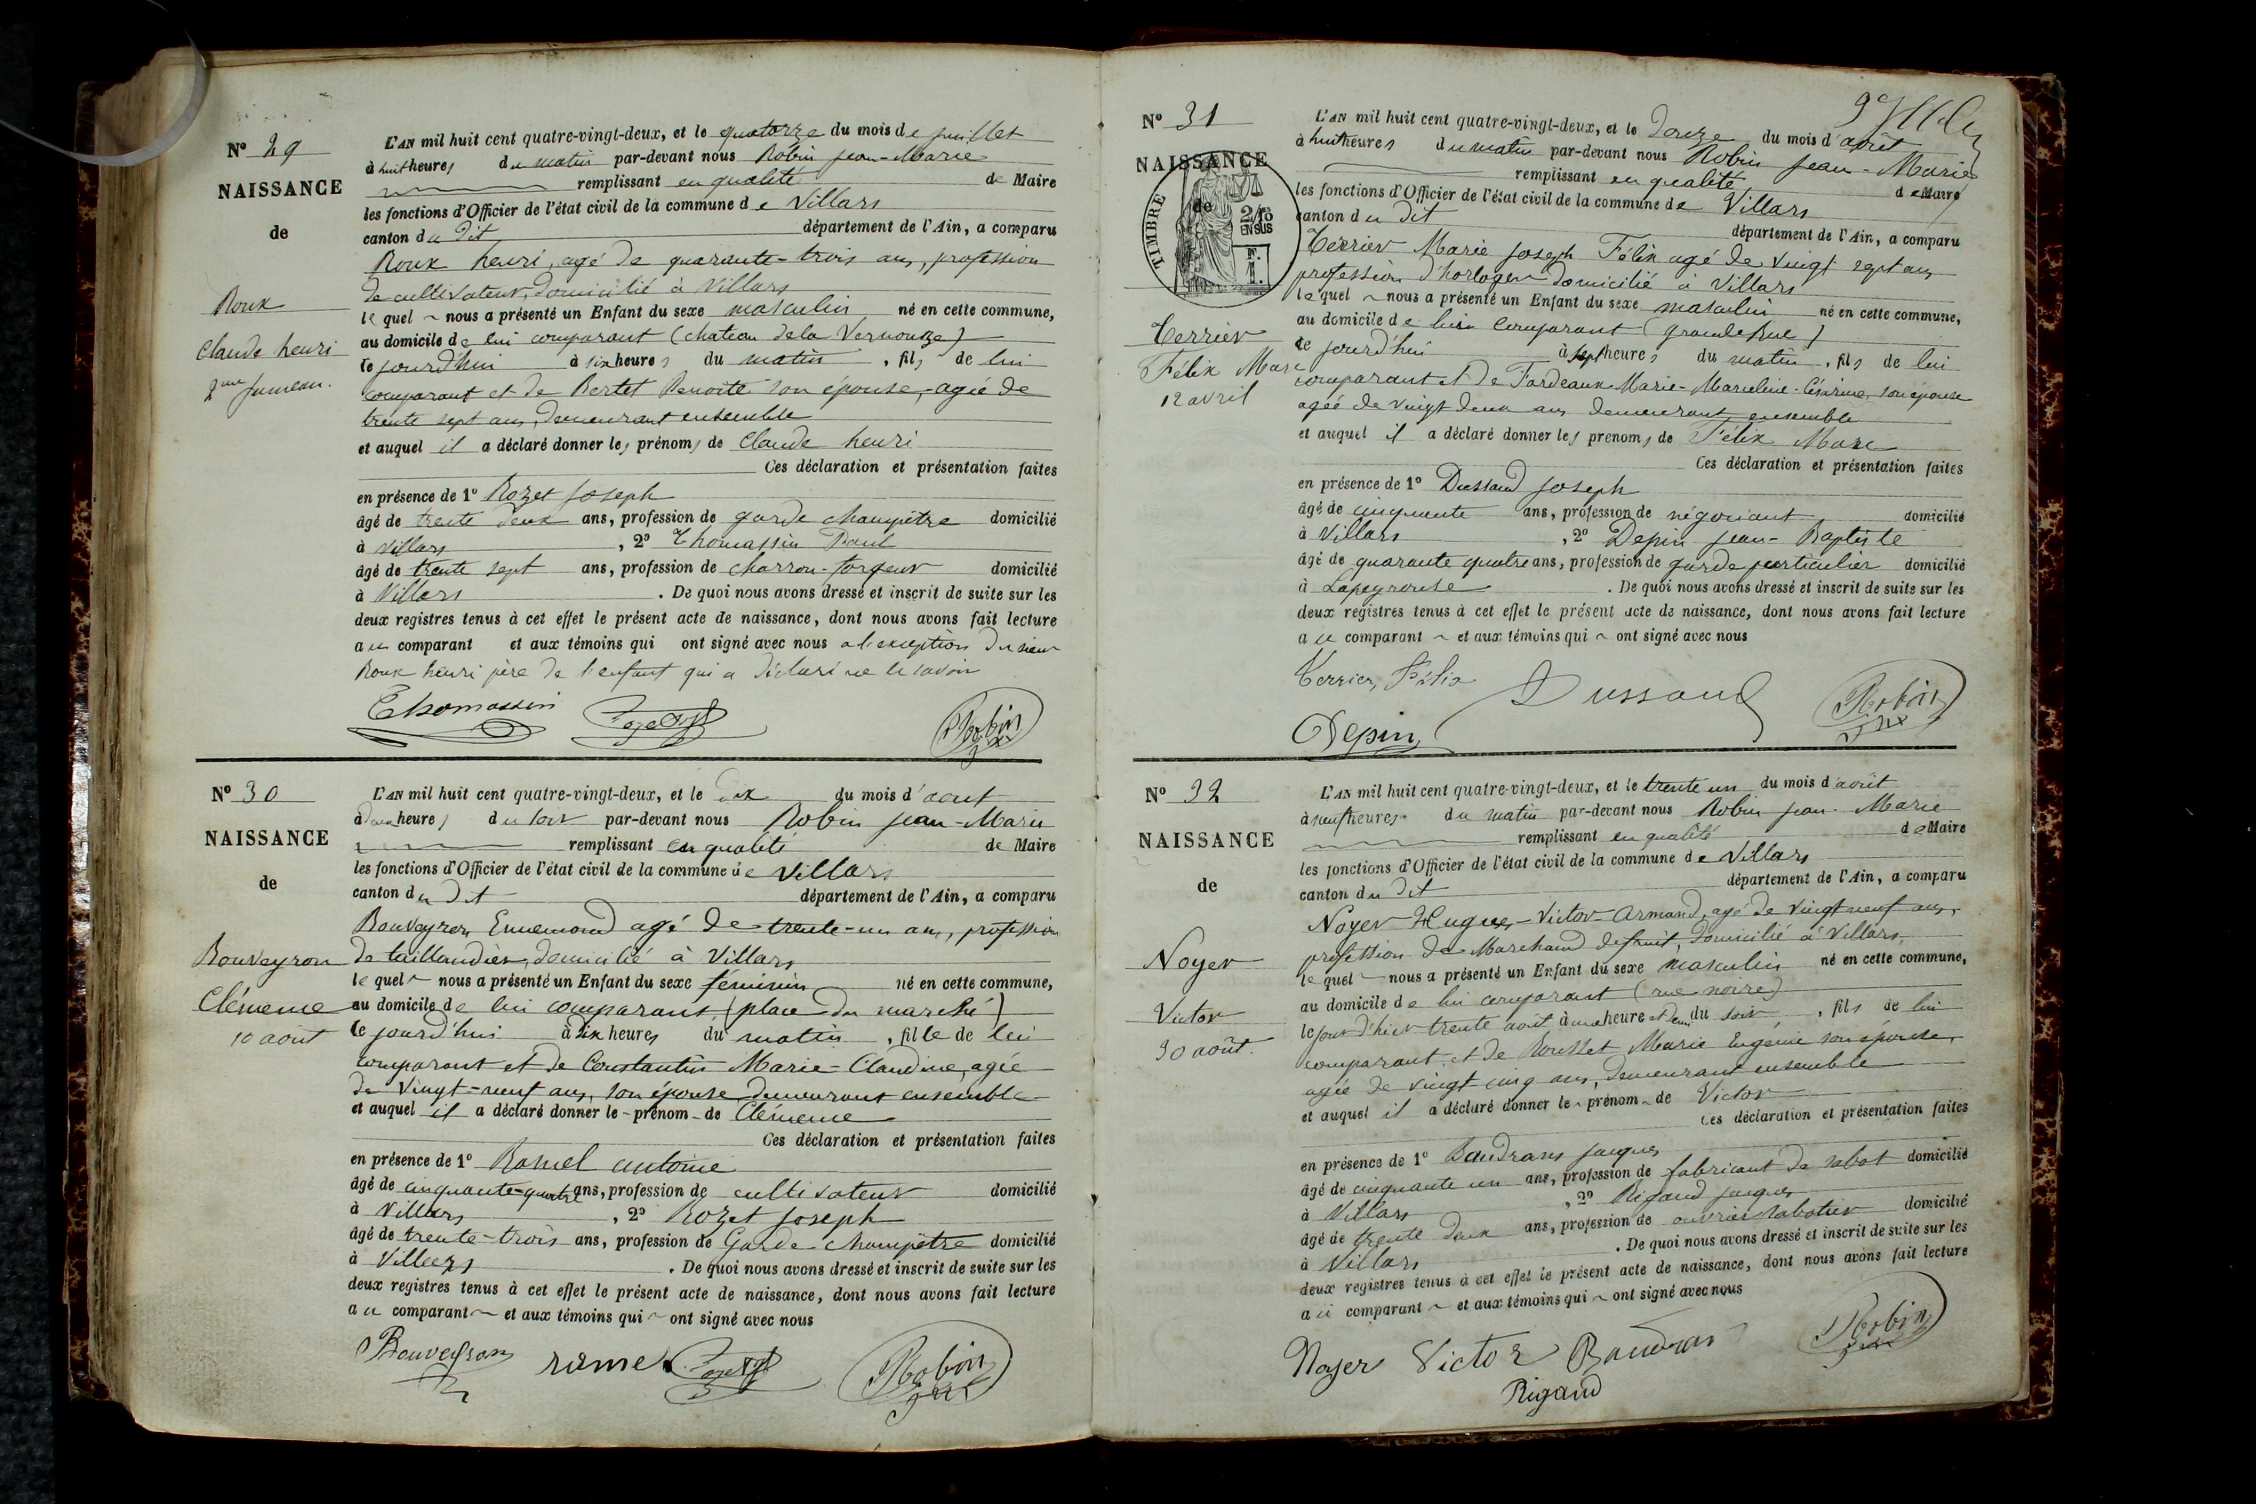 N° 29
NAISSANCE
de
Roux
Claude henri
2me Jumeau.
L'AN mil huit cent quatre-vingt-deux, et le quatorze du mois de juillet
à huit heures du matin par-devant nous Robin Jean-Marie
remplissant en qualité de Maire
les fonctions d'Officier de l'état civil de la commune de Villars
canton du dit département de l'Ain, a comparu
Roux henri, agé de quarante-trois ans, profession
de cultivateur, domicilié à Villars
lequel nous a présenté un Enfant du sexe masculin né en cette commune,
au domicile de lui comparant (chateau de la Vernouze)
le jourd'hui à six heures du matin, fils de lui
comparant et de Bertet Benoite son épouse, agée de
trente sept ans, demeurant ensemble
et auquel il a déclaré donner les prénoms de Claude henri
Ces déclaration et présentation faites
en présence de 1° Rozet Joseph
âgé de trente deux ans, profession de garde champêtre domicilié
à Villars, 2° Thomassin Paul
âgé de trente sept ans, profession de charron-forgeur domicilié
à Villars. De quoi nous avons dressé et inscrit de suite sur les
deux registres tenus à cet effet le présent acte de naissance, dont nous avons fait lecture
au comparant et aux témoins qui ont signé avec nous a l'exception du sieur
Roux henri père de l'enfant qui a déclaré ne le savoir
Thomassin Rozet Robin
N° 30
NAISSANCE
de
Bouveyron
Clémence
10 août
L'AN mil huit cent quatre-vingt-deux, et le dix du mois d'aout
à deux heures du soir par-devant nous Robin Jean-Marie
remplissant en qualité de Maire
les fonctions d'Officier de l'état civil de la commune de Villars
canton du dit département de l'Ain, a comparu
Bouveyron Ennemond agé de trente-un ans, profession
de taillandier, domicilié à Villars
lequel nous a présenté un Enfant du sexe féminin né en cette commune,
au domicile de lui comparant (place du marché)
le jourd'hui à dix heures du matin, fille de lui
comparant et de Constantin Marie-Claudine, agée
de Vingt-neuf ans, son épouse demeurant ensemble
et auquel il a déclaré donner le prénom de Clémence
Ces déclaration et présentation faites
en présence de 1° Ramel antoine
âgé de cinquante-quatre ans, profession de cultivateur domicilié
à Villars, 2° Rozet Joseph
âgé de trente-trois ans, profession de Garde-champêtre domicilié
à Villars. De quoi nous avons dressé et inscrit de suite sur les
deux registres tenus à cet effet le présent acte de naissance, dont nous avons fait lecture
au comparant et aux témoins qui ont signé avec nous
Bouveyron ramel Rozet Robin
N° 31
NAISSANCE
de
TIMBRE
2/10 EN SUS
Terrier
Félix Marc
12 avril
L'AN mil huit cent quatre-vingt-deux, et le douze du mois d'août
à huit heures du matin par-devant nous Robin Jean-Marie
remplissant en qualité de Maire
les fonctions d'Officier de l'état civil de la commune de Villars
canton du dit département de l'Ain, a comparu
Terrier Marie Joseph Félix agé de vingt sept ans
profession d'horloger domicilié à Villars
lequel nous a présenté un Enfant du sexe masculin né en cette commune,
au domicile de lui comparant (grande Rue)
ce jourd'hui à sept heures du matin, fils de lui
comparant et de Fardeaux Marie-Marceline-Césarine, son épouse
agée de vingt deux ans demeurant ensemble
et auquel il a déclaré donner les prenoms de Félix Marc
Ces déclaration et présentation faites
en présence de 1° Dussaud Joseph
âgé de cinquante ans, profession de négociant domicilié
à Villars, 2° Depin Jean-Baptiste
âgé de quarante quatre ans, profession de garde particulier domicilié
à Lapeyrouse. De quoi nous avons dressé et inscrit de suite sur les
deux registres tenus à cet effet le présent acte de naissance, dont nous avons fait lecture
au comparant et aux témoins qui ont signé avec nous
Terrier, Félix Dussaud Robin
Depin
N° 32
NAISSANCE
de
Noyer
Victor
30 août.
L'AN mil huit cent quatre-vingt-deux, et le trente un du mois d'août
à neuf heures du matin par-devant nous Robin Jean-Marie
remplissant en qualité de Maire
les fonctions d'Officier de l'état civil de la commune de Villars
canton du dit département de l'Ain, a comparu
Noyer Hugues-Victor-Armand, agé de vingt neuf ans,
profession de Marchand de fruit, domicilié à Villars,
lequel nous a présenté un Enfant du sexe masculin né en cette commune,
au domicile de lui comparant (rue noire)
le jour d'hier trente août à une heure et demi du soir, fils de lui
comparant et de Rousset Marie Eugénie son épouse,
agée de vingt cinq ans, demeurant ensemble
et auquel il a déclaré donner le prénom de Victor
Ces déclaration et présentation faites
en présence de 1° Baudrans Jacques
âgé de cinquante un ans, profession de fabricant de sabot domicilié
à Villars, 2° Rigaud Jacques
âgé de trente deux ans, profession de ouvrier sabotier domicilié
à Villars. De quoi nous avons dressé et inscrit de suite sur les
deux registres tenus à cet effet le présent acte de naissance, dont nous avons fait lecture
au comparant et aux témoins qui ont signé avec nous
Noyer Victor Baudran Robin
Rigaud